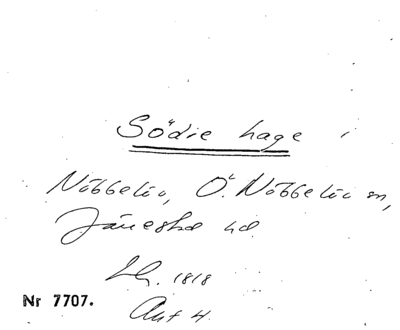 Södie hage
Nöbbelöv, Ö. Nöbbelöv sn,
Järrestad hd.
Lh. 1818
Akt 4.
Nr 7707.